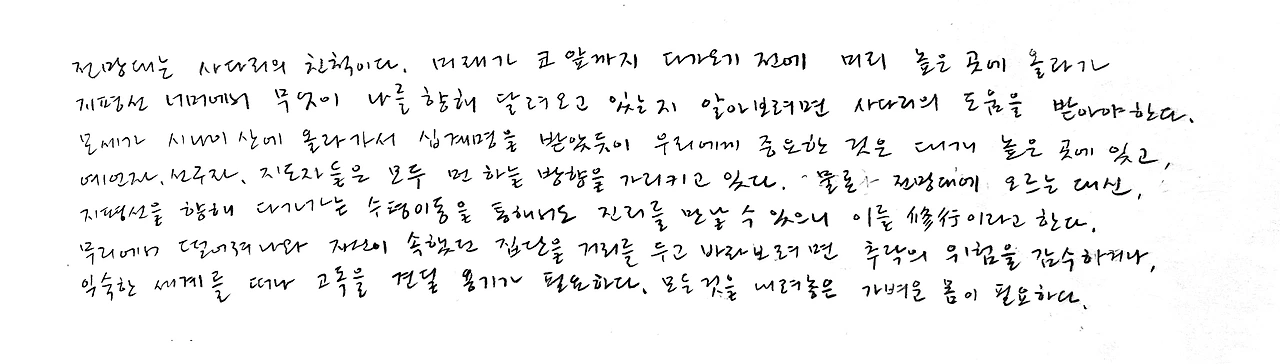 전망대는 사다리의 친척이다. 미래가 코 앞까지 다가오기 전에 미리 높은 곳에 올라가
지평선 너머에서 무엇이 나를 향해 달려오고 있는지 알아보려면 사다리의 도움을 받아야 한다.
모세가 시나이 산에 올라가서 십계명을 받았듯이 우리에게 중요한 것은 대개 높은 곳에 있고,
예언자, 선구자, 지도자들은 모두 먼 하늘 방향을 가리키고 있다. 물론 전망대에 오르는 대신,
지평선을 향해 다가가는 수평이동을 통해서도 진리를 만날 수 있으니 이를 修行이라고 한다.
무리에서 떨어져나와 자신이 속했던 집단을 거리를 두고 바라보려면 추락의 위험을 감수하거나,
익숙한 세계를 떠나 고독을 견딜 용기가 필요하다. 모든 것을 내려놓은 가벼운 몸이 필요하다.